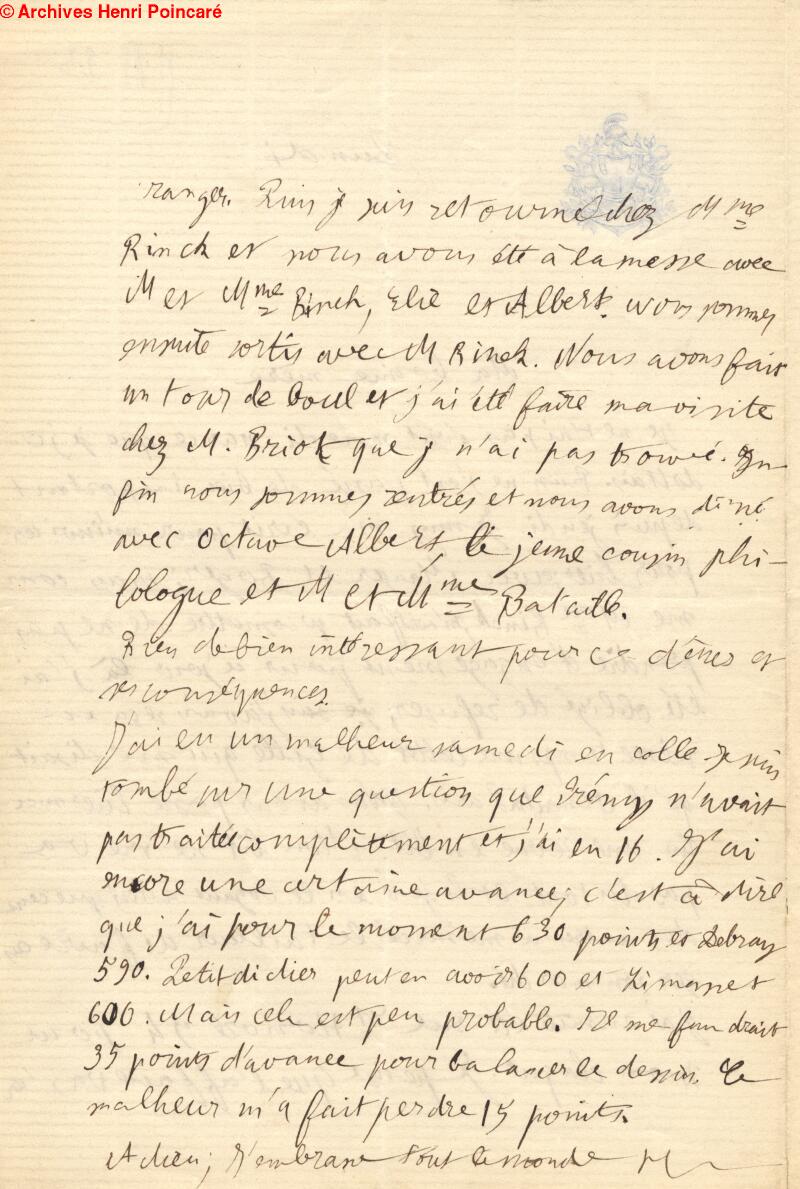 © Archives Henri Poincaré
ranger. Puis je suis retourné chez Mme
Rinck et nous avons été à la messe avec
M et Mme Rinck, Elie et Albert. nous sommes
ensuite sortis avec M Rinck. Nous avons fait
un tour de boul et j'ai été faire ma visite
chez M. Briot que je n'ai pas trouvé. En
fin nous sommes rentrés et nous avons diné
avec Octave Albert, le jeune cousin phi-
lologue et M et Mme Bataille.
Rien de bien intéressant pour ce dêner et
ses conséquences.
J'ai eu un malheur samedi en colle je suis
tombé sur une question que frémy n'avait
pas traitée complètement et j'ai eu 16. J'ai
encore une certaine avance; c'est à dire
que j'ai pour le moment 630 points et Debray
590. Petitdidier peut en avoir 600 et
606. Mais cela est peu probable. Il me faudrait
35 points d'avance pour balancer le dessin. Ce
malheur m'a fait perdre 15 points.
Adieu; J'embrasse tout le monde